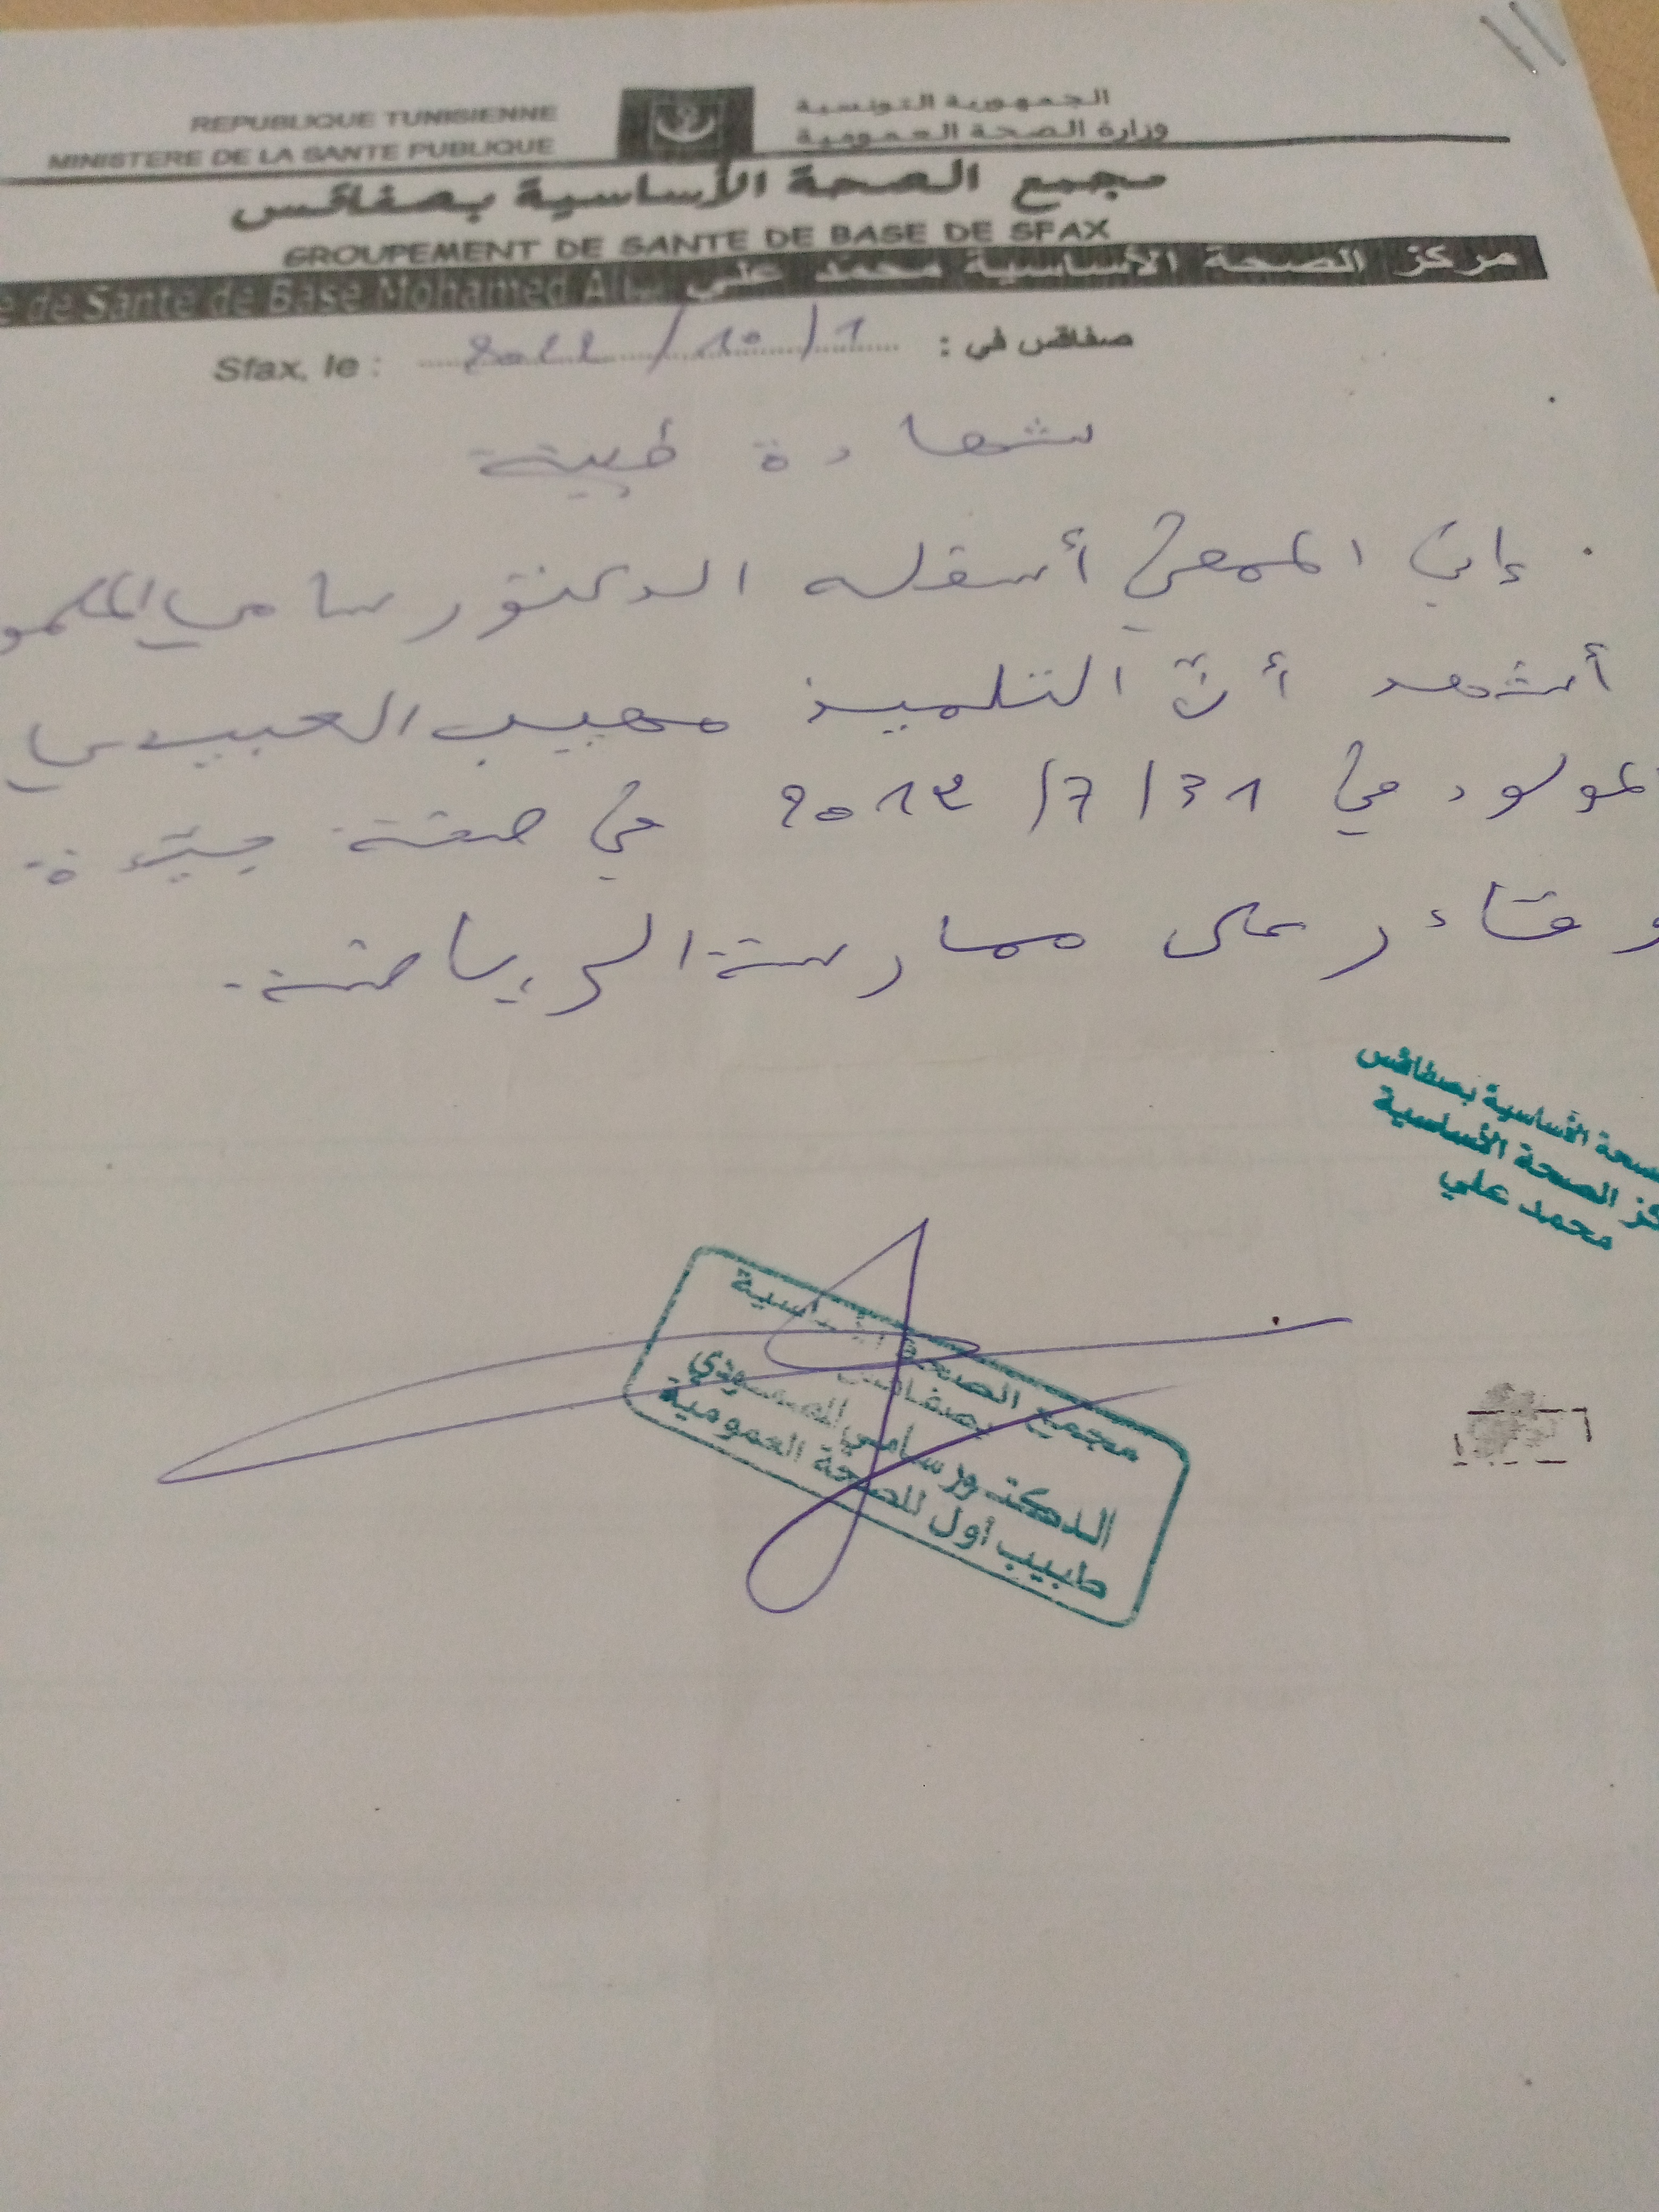 REPUBLIQUE TUNISIENNE
MINISTERE DE LA SANTE PUBLIQUE
الجمهورية التونسية
وزارة الصحة العمومية
مجمع الصحة الأساسية بصفاقس
GROUPEMENT DE SANTE DE BASE DE SFAX
e de Sante de Base Mohamed Ali مركز الصحة الأساسية محمد علي
Sfax, le : 2022/10/1 صفاقس في :
شهادة طبية
إني الممضي أسفله الدكتور سامي
أشهد أنّ التلميذ مهيب العبيدي
المولود في 31/7/2012 في صحة جيّدة
و قادر على ممارسة الرياضة.
صحة الأساسية بصفاقس
كز الصحة الأساسية
محمد علي
مجمع الصحة الأساسية
بصفاقس
الدكتور سامي المسعودي
طبيب أول للصحة العمومية